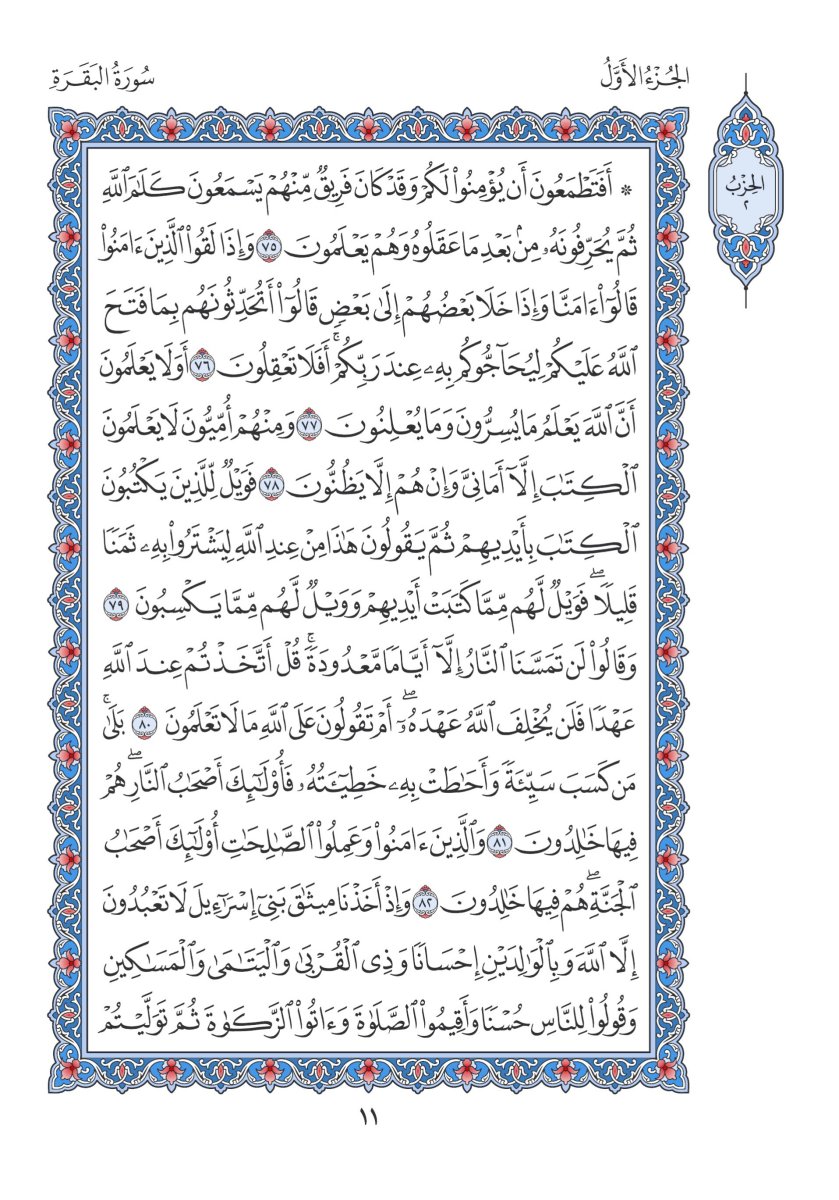 الجُزْءُ الأَوَّلُ
سُورَةُ البَقَرَةِ
الحِزْبُ
٢
۞ أَفَتَطْمَعُونَ أَن يُؤْمِنُوا۟ لَكُمْ وَقَدْ كَانَ فَرِيقٌ مِّنْهُمْ يَسْمَعُونَ كَلَـٰمَ ٱللَّهِ
ثُمَّ يُحَرِّفُونَهُۥ مِنۢ بَعْدِ مَا عَقَلُوهُ وَهُمْ يَعْلَمُونَ ٧٥ وَإِذَا لَقُوا۟ ٱلَّذِينَ ءَامَنُوا۟
قَالُوٓا۟ ءَامَنَّا وَإِذَا خَلَا بَعْضُهُمْ إِلَىٰ بَعْضٍ قَالُوٓا۟ أَتُحَدِّثُونَهُم بِمَا فَتَحَ
ٱللَّهُ عَلَيْكُمْ لِيُحَآجُّوكُم بِهِۦ عِندَ رَبِّكُمْ ۚ أَفَلَا تَعْقِلُونَ ٧٦ أَوَلَا يَعْلَمُونَ
أَنَّ ٱللَّهَ يَعْلَمُ مَا يُسِرُّونَ وَمَا يُعْلِنُونَ ٧٧ وَمِنْهُمْ أُمِّيُّونَ لَا يَعْلَمُونَ
ٱلْكِتَـٰبَ إِلَّآ أَمَانِىَّ وَإِنْ هُمْ إِلَّا يَظُنُّونَ ٧٨ فَوَيْلٌ لِّلَّذِينَ يَكْتُبُونَ
ٱلْكِتَـٰبَ بِأَيْدِيهِمْ ثُمَّ يَقُولُونَ هَـٰذَا مِنْ عِندِ ٱللَّهِ لِيَشْتَرُوا۟ بِهِۦ ثَمَنًا
قَلِيلًا ۖ فَوَيْلٌ لَّهُم مِّمَّا كَتَبَتْ أَيْدِيهِمْ وَوَيْلٌ لَّهُم مِّمَّا يَكْسِبُونَ ٧٩
وَقَالُوا۟ لَن تَمَسَّنَا ٱلنَّارُ إِلَّآ أَيَّامًا مَّعْدُودَةً ۚ قُلْ أَتَّخَذْتُمْ عِندَ ٱللَّهِ
عَهْدًا فَلَن يُخْلِفَ ٱللَّهُ عَهْدَهُۥٓ ۖ أَمْ تَقُولُونَ عَلَى ٱللَّهِ مَا لَا تَعْلَمُونَ ٨٠ بَلَىٰ ۚ
مَن كَسَبَ سَيِّئَةً وَأَحَـٰطَتْ بِهِۦ خَطِيٓـَٔتُهُۥ فَأُو۟لَـٰٓئِكَ أَصْحَـٰبُ ٱلنَّارِ ۖ هُمْ
فِيهَا خَـٰلِدُونَ ٨١ وَٱلَّذِينَ ءَامَنُوا۟ وَعَمِلُوا۟ ٱلصَّـٰلِحَـٰتِ أُو۟لَـٰٓئِكَ أَصْحَـٰبُ
ٱلْجَنَّةِ ۖ هُمْ فِيهَا خَـٰلِدُونَ ٨٢ وَإِذْ أَخَذْنَا مِيثَـٰقَ بَنِىٓ إِسْرَٰٓءِيلَ لَا تَعْبُدُونَ
إِلَّا ٱللَّهَ وَبِٱلْوَٰلِدَيْنِ إِحْسَانًا وَذِى ٱلْقُرْبَىٰ وَٱلْيَتَـٰمَىٰ وَٱلْمَسَـٰكِينِ
وَقُولُوا۟ لِلنَّاسِ حُسْنًا وَأَقِيمُوا۟ ٱلصَّلَوٰةَ وَءَاتُوا۟ ٱلزَّكَوٰةَ ثُمَّ تَوَلَّيْتُمْ
١١